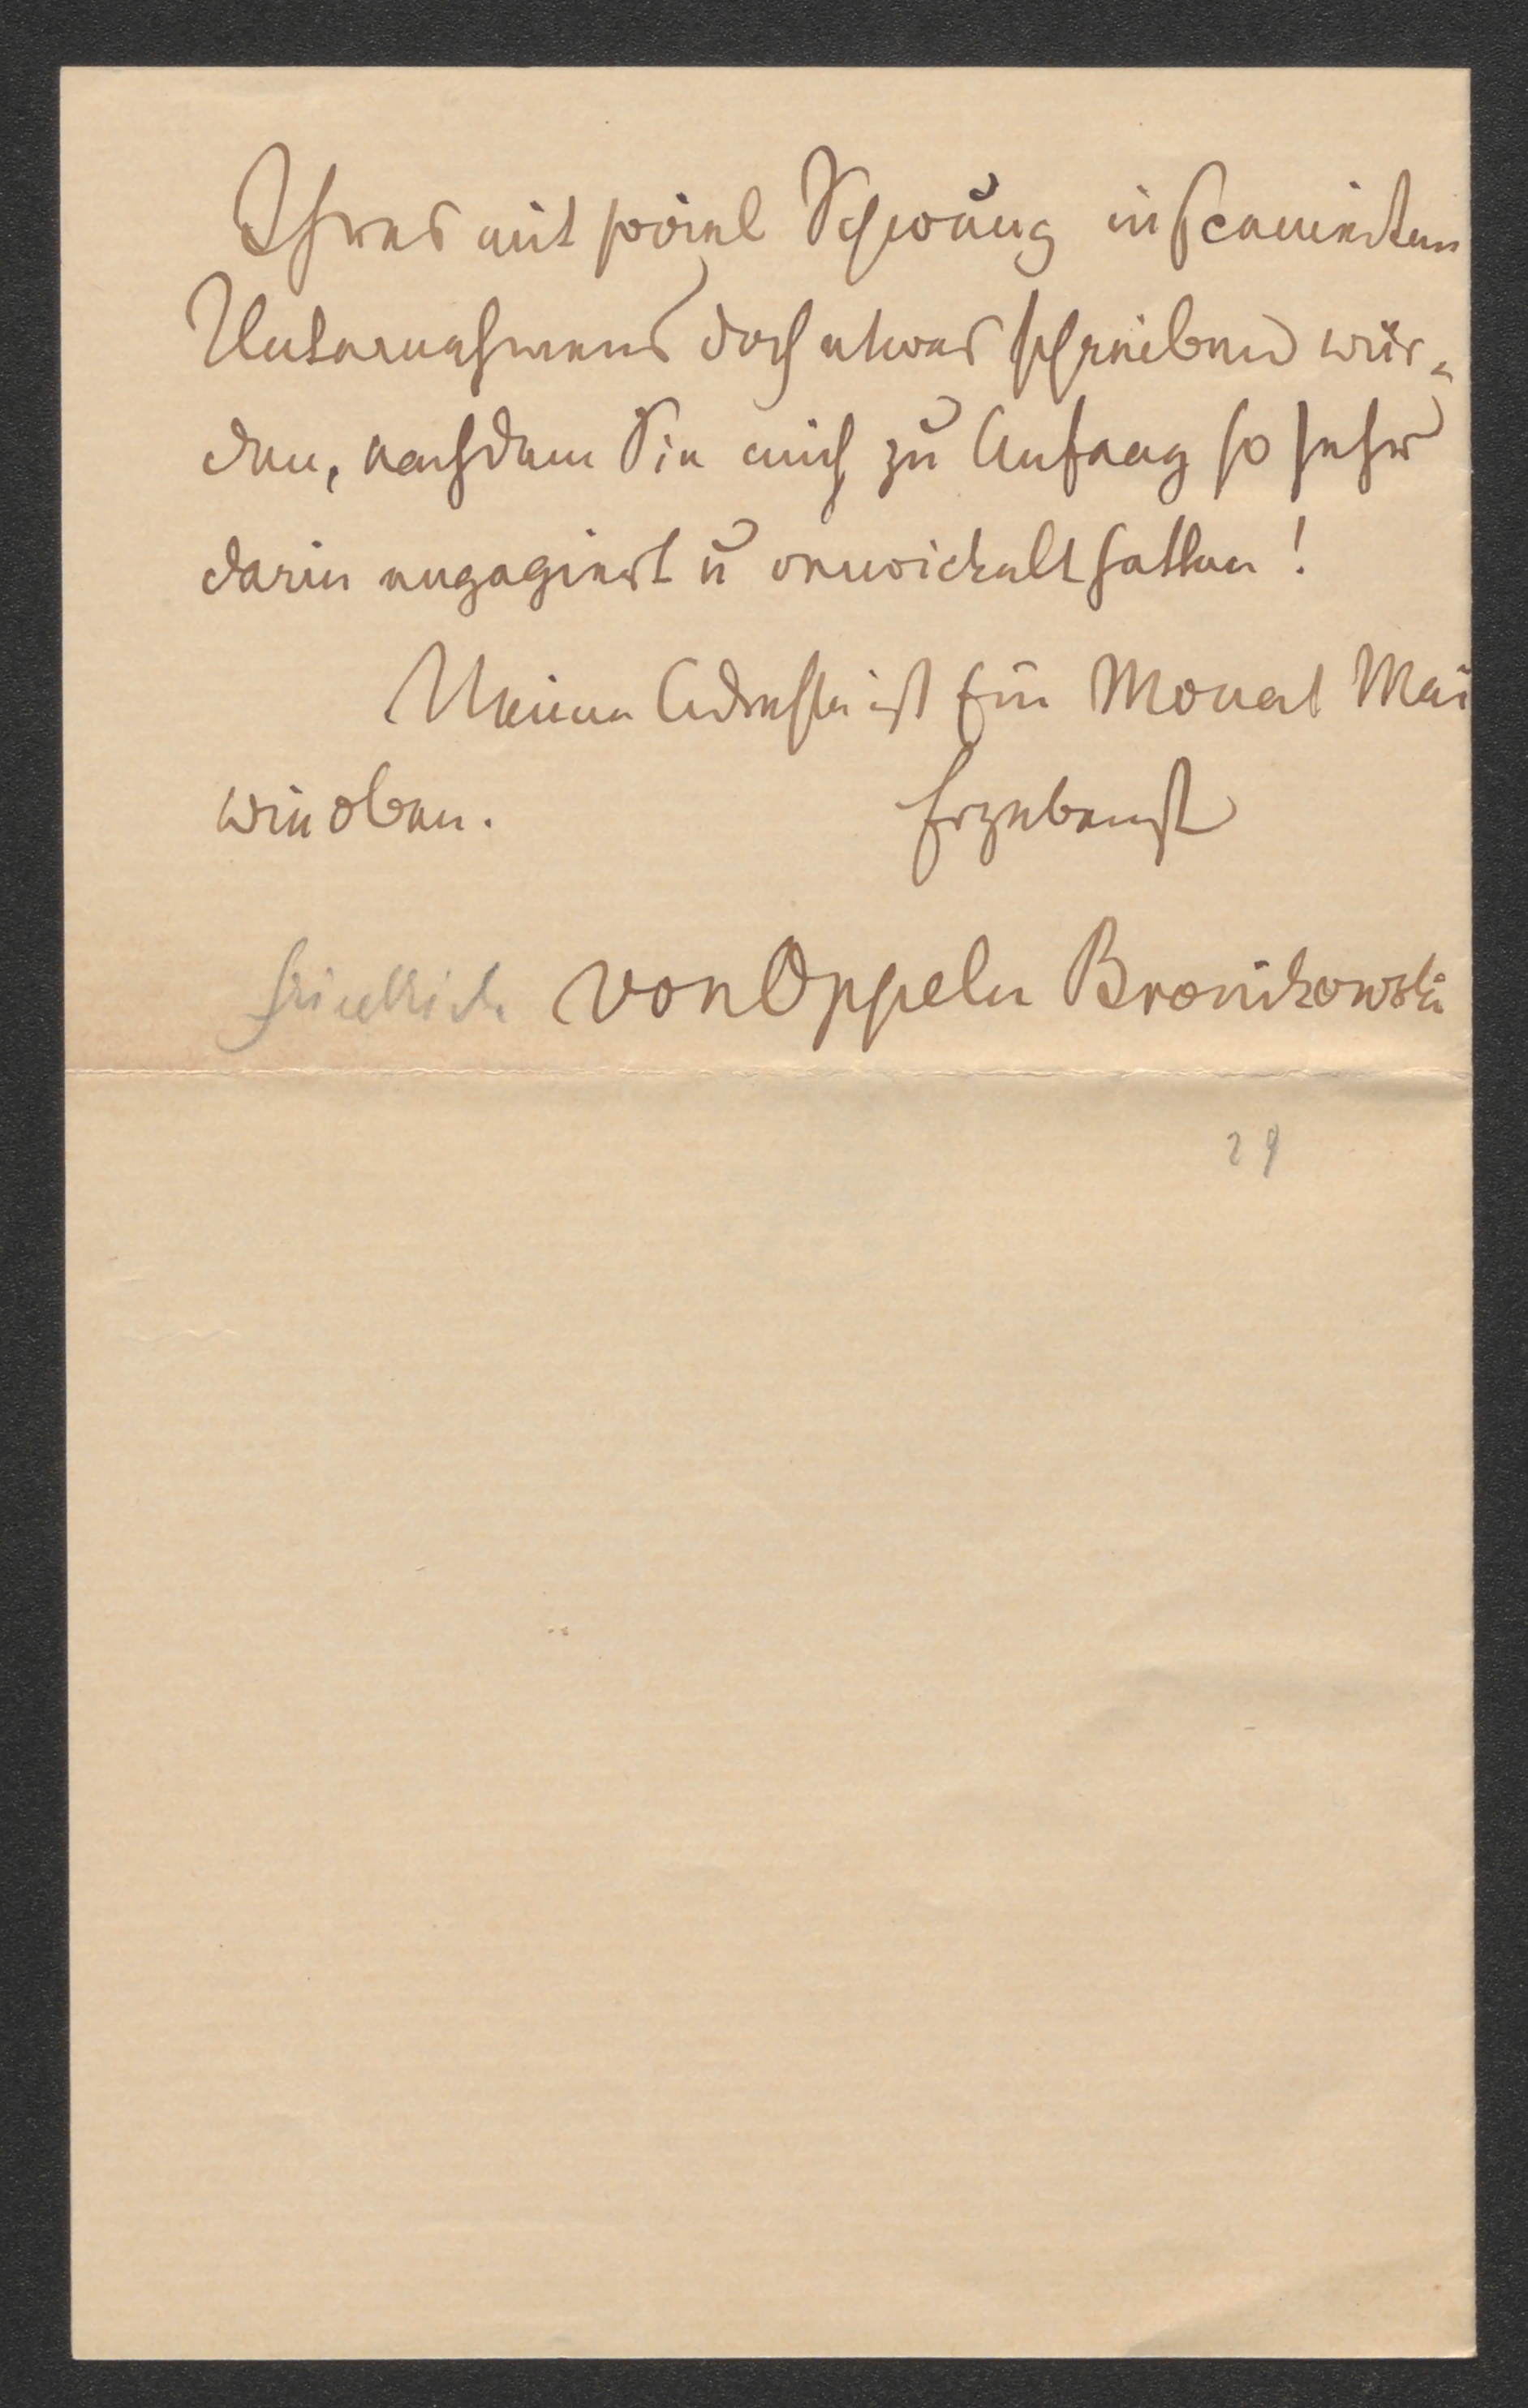 Ihres mit soviel Schwung inscenierten
Unternehmens doch etwas schreiben wür-
den, nachdem Sie mich zu Anfang so sehr
darin engagiert u verwickelt hatten!
Meine Adresse ist für Monat Mai
wie oben. Ergebenst
Friedrich von Oppeln Bronikowski
29